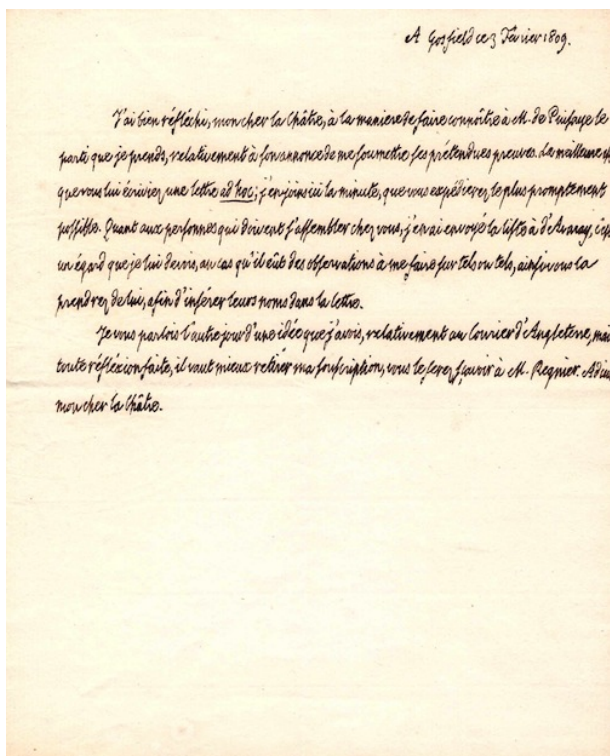 A Gosfield ce 3 Février 1809.
J'ai bien réfléchi, mon cher la Châtre, à la maniere de faire connoître à M. de Puisaye le
parti que je prends, relativement à son annonce de me soumettre ses prétendues preuves. La meilleure est
que vous lui écriviez une lettre ad hoc; j'en joins ici la minute, que vous expédierez le plus promptement
possible. Quant aux personnes qui doivent s'assembler chez vous, j'en ai envoyé la liste à d'Avaray, c'est
un égard que je lui devois, au cas qu'il eût des observations à me faire sur tels ou tels, ainsi vous la
prendrez de lui, afin d'insérer leurs noms dans la lettre.
Je vous parlois l'autre jour d'une idée que j'avois, relativement au Courier d'Angleterre, mais
toute réfléxion faite, il vaut mieux retirer ma souscription, vous le ferez sçavoir à M. Regnier. Adieu
mon cher la Châtre.